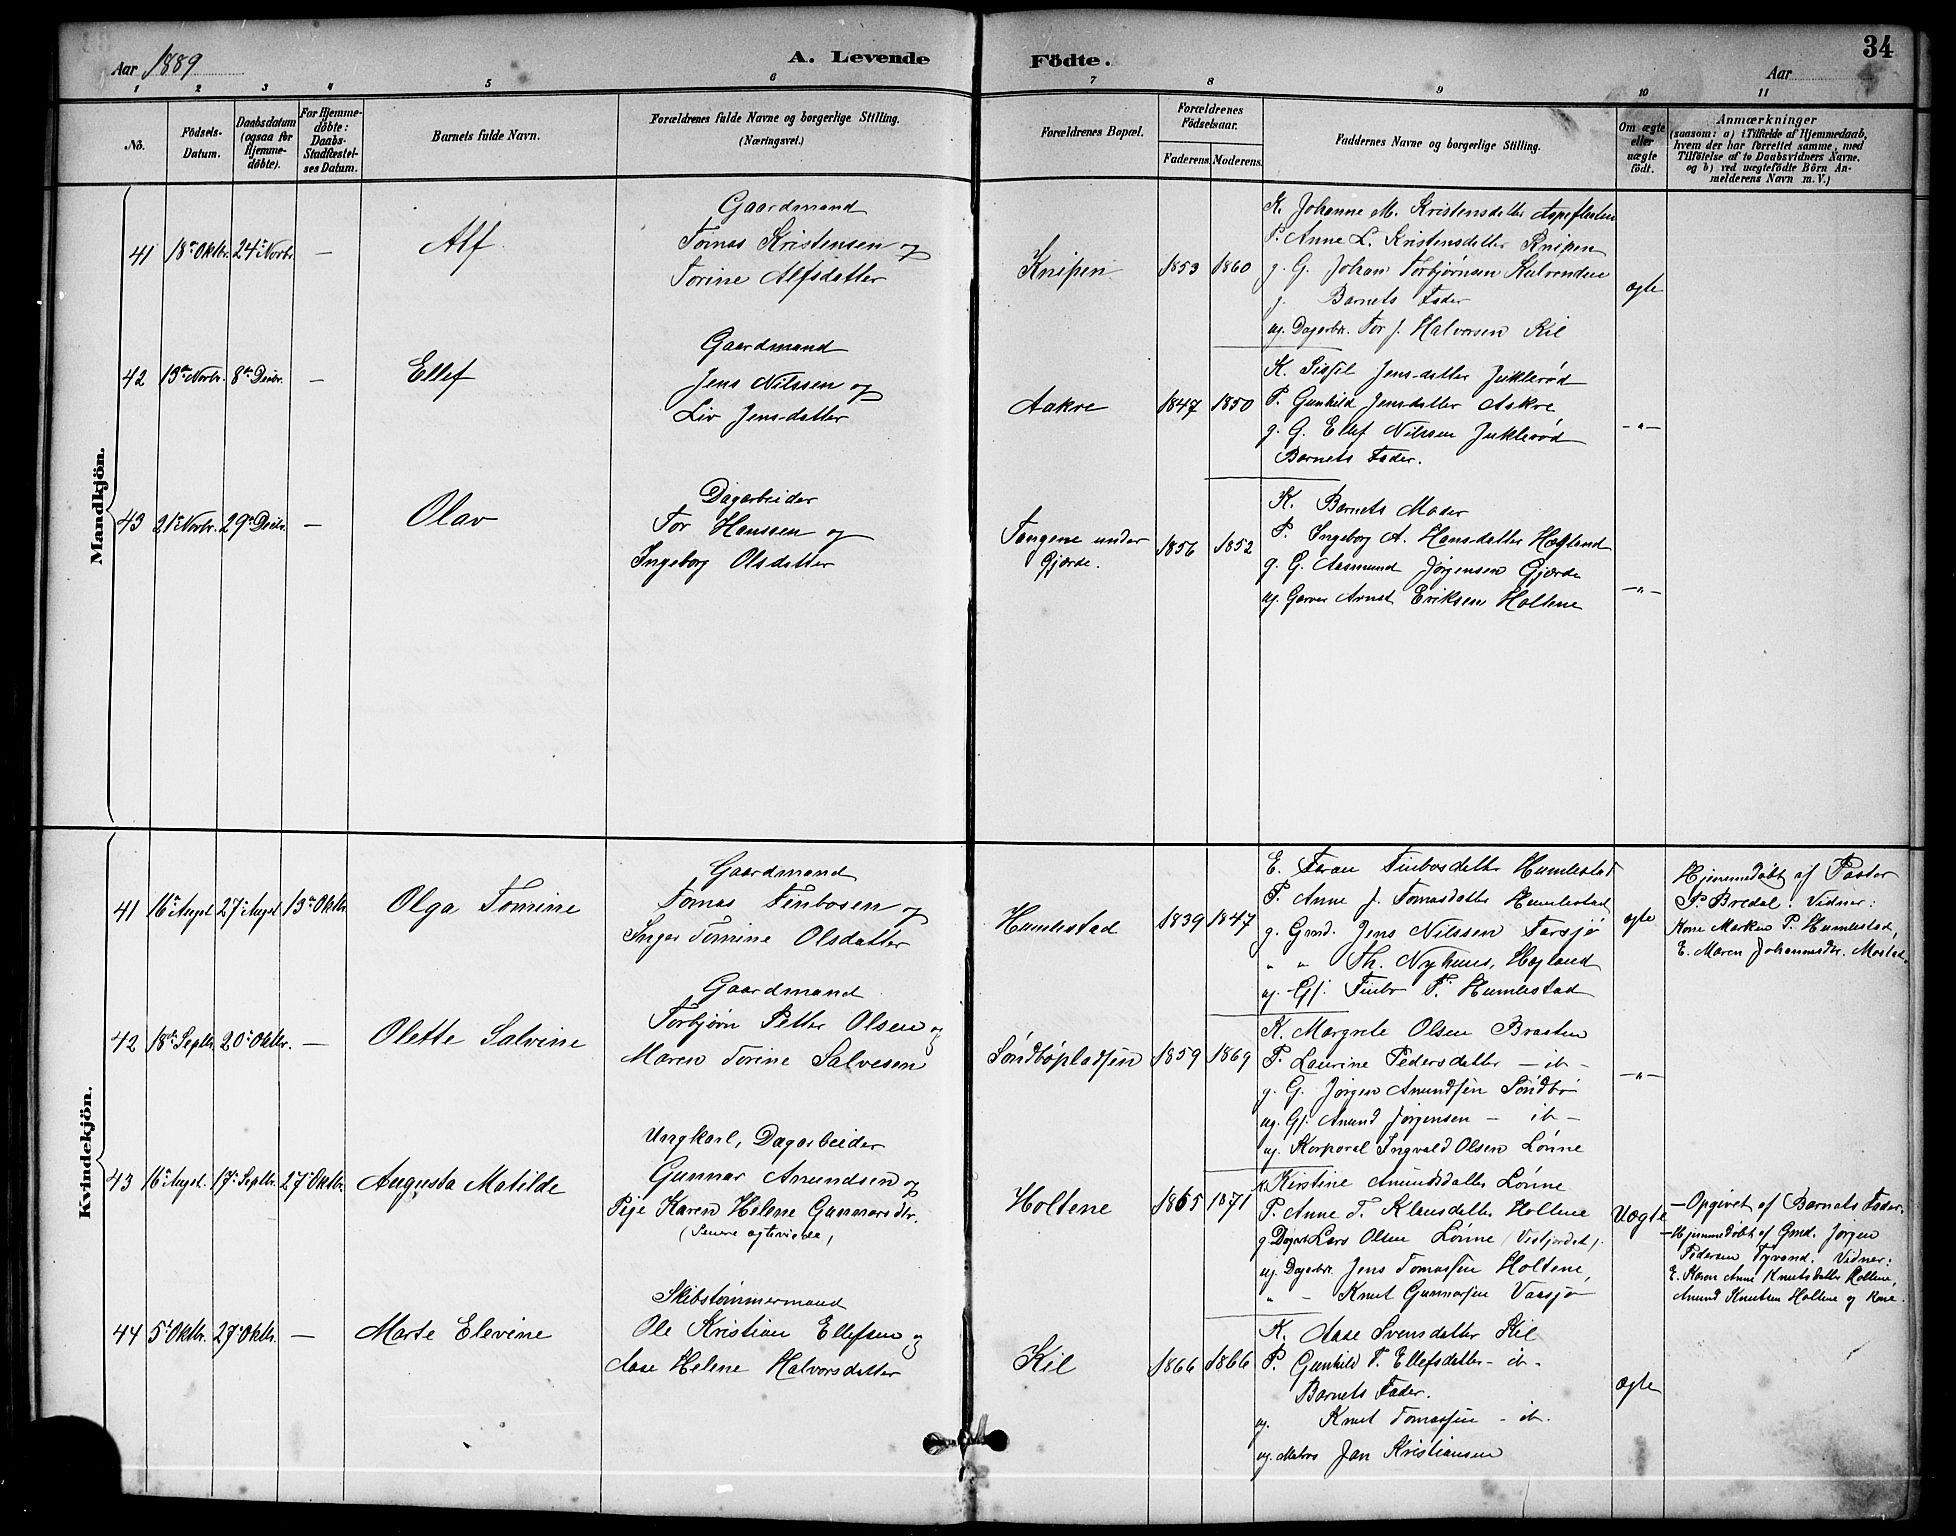 Aar 1889
A. Levende Födte.
Aar
34
1 2 3 4 5 6 7 8 9 10 11
No.
Födsels-Datum.
Daabsdatum (ogsaa for Hjemme-døbte).
For Hjemme-døbte: Daabs-Stadfæstel-ses Datum.
Barnets fulde Navn.
Forældrenes fulde Navne og borgerlige Stilling. (Næringsvei.)
Forældrenes Bopæl.
Forældrenes Födselsaar.
Faderens. Moderens.
Faddernes Navne og borgerlige Stilling.
Om ægte eller uægte födt.
Anmærkninger
(saasom: a) i Tilfælde af Hjemmedaab,
hvem der har forrettet samme, med
Tilföielse af to Daabsvidners Navne,
og b) ved uægtefödte Börn An-
melderens Navn m. V.)
Mandkjön.
41 18de Oktbr. 24de Novbr. — Alf
Gaardmand
Tomas Kristensen og
Torine Alfsdatter
Knipen 1853 1860
K. Johanne M. Kristensdatter
P. Anne L. Kristensdatter Knipen
g. G. Johan Torbjørnsen
g. Barnets Fader
ug. Dagarbr. Tor J. Halvorsen Kil
ægte
42 13de Novbr. 8de Decbr. — Ellef
Gaardmand
Jens Nilssen og
Liv Jensdatter
Aakre 1847 1850
K. Sissil Jensdatter Juklerød
P. Gunhild Jensdatter Aakre
g. G. Ellef Nilssen Juklerød
Barnets Fader.
—"—
43 21de Novbr. 29de Decbr. — Olav
Dagarbeider
Tor Hanssen og
Ingeborg Olsdatter
Tangene under
Gjerde.
1856 1852
K. Barnets Moder
P. Ingeborg A. Hansdatter Høgland
g. G. Aasmund Jørgensen Gjerde
ug. Garver Arnst Eriksen Holtene
—"—
Kvindekjön.
41 16de Augst 27de Augst 13de Oktbr. Olga Tomine
Gaardmand
Tomas Finbosen og
Inger Tomine Olsdatter
Humlestad 1839 1847
E. Taran Finbosdatter Humlestad
P. Anne J. Tomasdatter Humlestad
g. Gmd. Jens Nilssen Farsjø
" " Th. Nyhuus, Høgland
ug. Gf. Finbo T. Humlestad
ægte
Hjemmedøbt af Pastor
P. Bredal. Vidner:
Kone Marken P. Humlestad,
E. Maren Johannesdtr. Mostad.
42 18de Septbr. 20de Oktbr. — Olette Salvine
Gaardmand
Torbjørn Petter Olsen og
Maren Torine Salvesen
Søndbøpladsen 1859 1869
K. Margrete Olsen Braaten
P. Laurine Pedersdatter — ib —
g. G. Jørgen Amundsen Søndbø
ug. Gf. Amund Jørgensen — ib —
ug. Korporal Ingvald Olsen Lønne
—"—
43 16de Augst. 17de Septbr. 27de Oktbr. Augusta Matilde
Ungkarl, Dagarbeider
Gunnar Amundsen og
Pige Karen Helene Gunnarsdtr.
(Senere ægteviede)
Holtene 1865 1871
K. Kirstine Amundsdatter Lønne
P. Anne T. Klausdatter Holtene
g. Dagarb. Lars Olsen Lønne (Vestfjordal).
ug. Dagarbr. Jens Tomassen Holtene,
" — Knut Gunnarsen Vaasjø
Uægte
— Opgivet af Barnets Fader.
— Hjemmedøbt af Gmd. Jørgen
Pedersen Tyvand. Vidner:
E. Karen Anne Knutsdatter Holtene,
Amund Knutsen Holtene og Kone.
44 5te Oktbr. 27de Oktbr. — Marte Elevine
Skibstømmermand
Ole Kristian Ellefsen og
Aase Helene Halvorsdatter
Kil 1866 1866
K. Aase Svensdatter Kil
P. Gunhild T. Ellefsdatter — ib —
Barnets Fader.
ug. Knut Tomassen — ib.
ug. Matros Jan Kristiansen
ægte